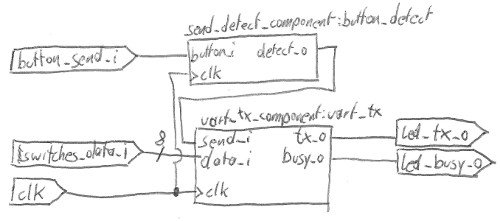 send_detect_component:button_detect
button_send_i
button_i
detect_o
clk
uart_tx_component:uart_tx
switches_data_i
8
send_i
data_i
clk
tx_o
busy_o
led_tx_o
led_busy_o
clk